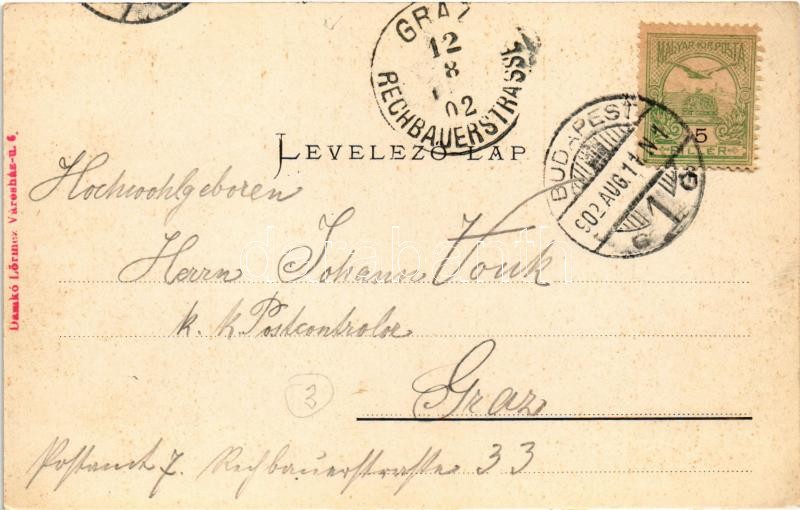 GRAZ
12
8
02
RECHBAUERSTRASSE
MAGYAR KIR. POSTA
5
FILLÉR
BUDAPEST
902 AUG. 11. N 1
1
LEVELEZŐ-LAP
Damkó Lőrincz Városház-u. 6.
Hochwohlgeboren
Herrn Johann Vouk
k. k. Postcontrolor
3
Graz
Postamt 7. Rechbauerstraße 33
darabanth